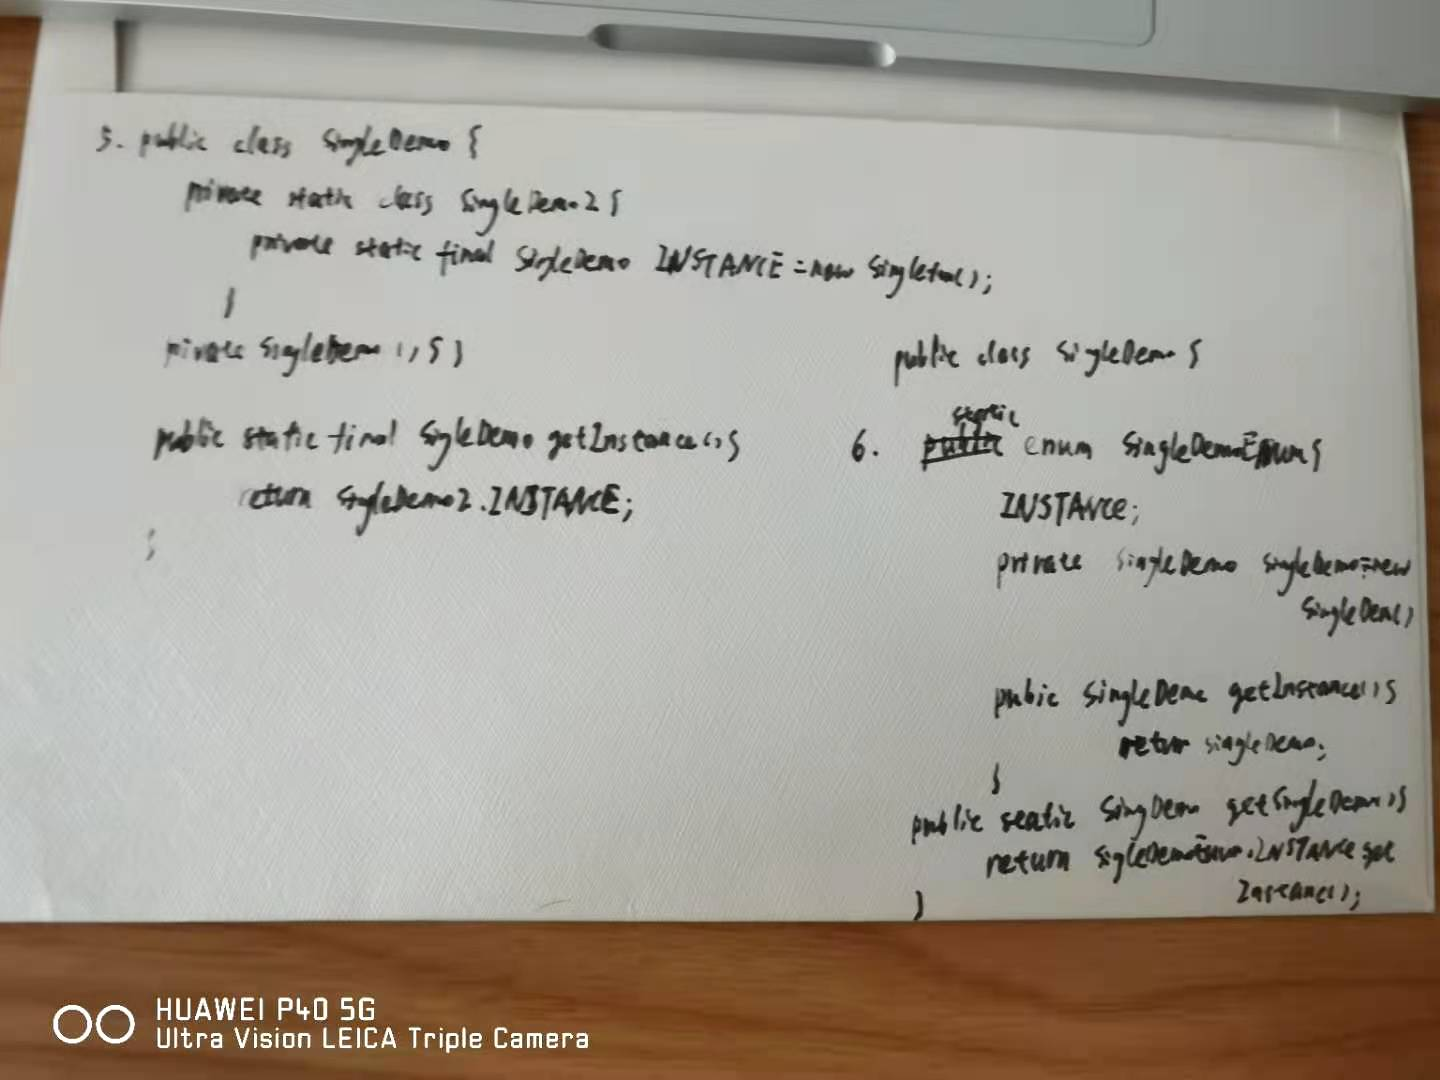 5. public class SingleDemo {
private static class SingleDemo2 {
private static final SingleDemo INSTANCE = new Singleton();
}
private SingleDemo () { }
public static final SigleDemo getInstance() {
return SigleDemo2.INSTANCE;
}
public class SingleDemo {
static
6. public enum SingleDemoEnum {
INSTANCE;
private SingleDemo singleDemo = new
SingleDem()
pubic SingleDemo getInstance() {
retur singleDemo;
}
public static SingDemo getSingleDemo() {
return sigleDemoEnum.INSTANCE get
Instance();
}
HUAWEI P40 5G
Ultra Vision LEICA Triple Camera